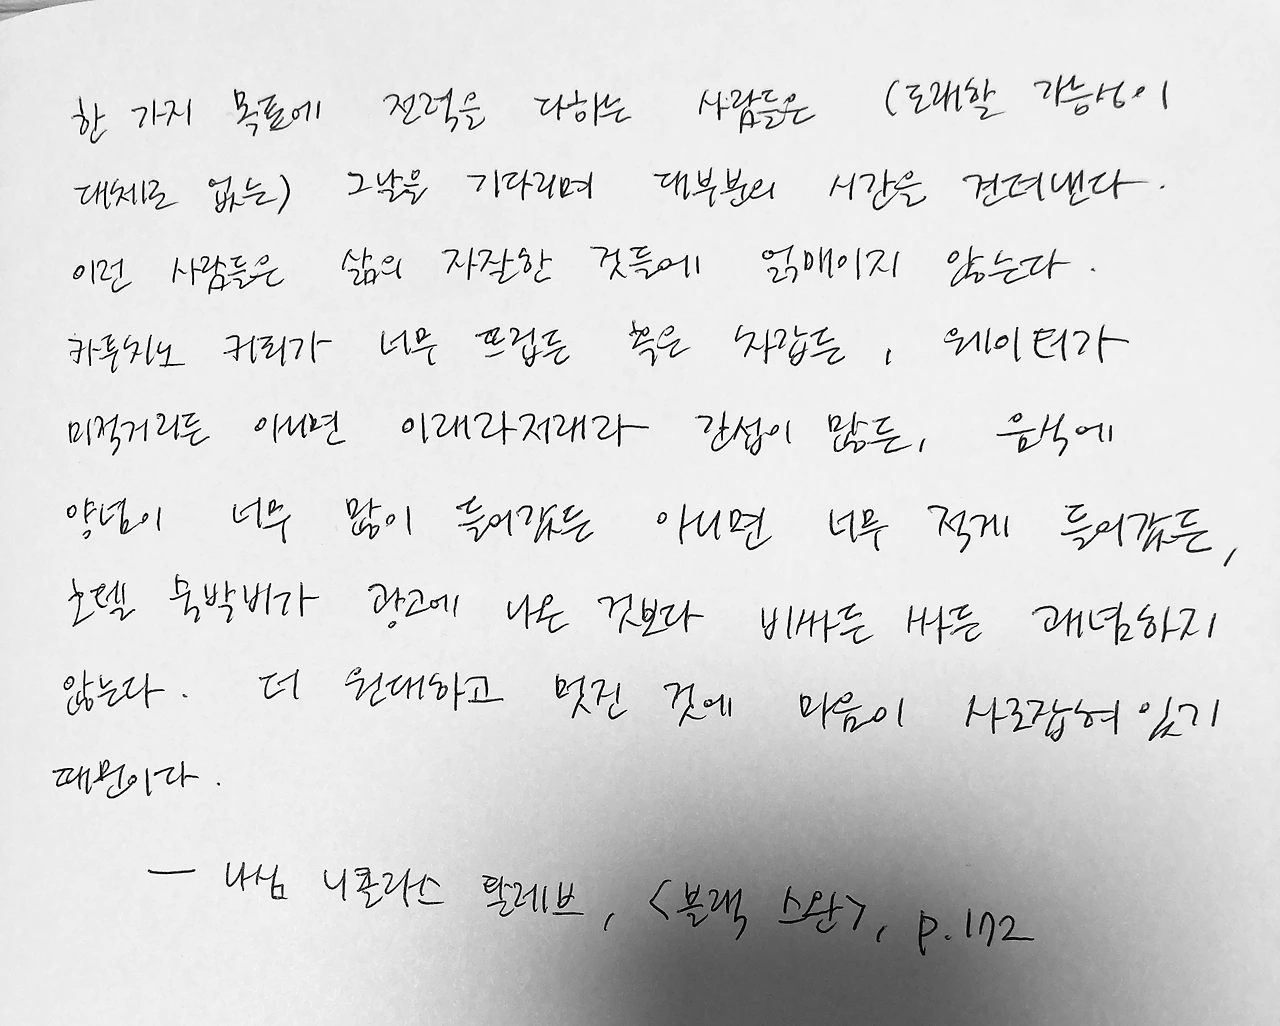 한 가지 목표에 전력을 다하는 사람들은 (도래할 가능성이
대체로 없는) 그날을 기다리며 대부분의 시간을 견뎌낸다.
이런 사람들은 삶의 자잘한 것들에 얽매이지 않는다.
카푸치노 커피가 너무 뜨겁든 혹은 차갑든, 웨이터가
미적거리든 아니면 이래라저래라 간섭이 많든, 음식에
양념이 너무 많이 들어갔든 아니면 너무 적게 들어갔든,
호텔 숙박비가 광고에 나온 것보다 비싸든 싸든 괘념하지
않는다. 더 원대하고 멋진 것에 마음이 사로잡혀 있기
때문이다.
— 나심 니콜라스 탈레브, <블랙 스완>, p.172